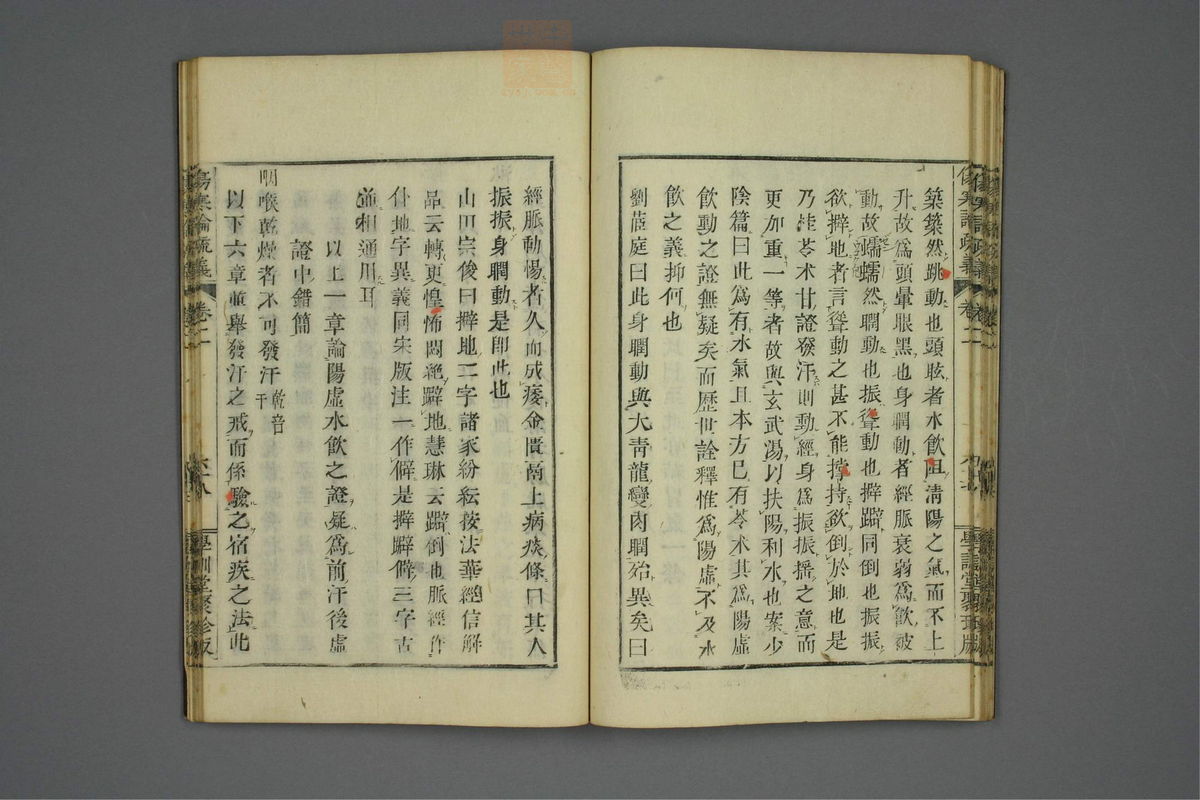 築築然跳動也頭眩者水飲阻淸陽之氣而不上
升故爲頭暈眼黑也身瞤動者經脈衰弱爲飲被
動故蠕蠕然瞤動也振聳動也擗躃同倒也振振
欲擗地者言聳動之甚不能撐持欲倒於地也是
乃桂苓朮甘證發汗則動經身爲振振搖之意而
更加重一等者故與玄武湯以扶陽利水也案少
陰篇曰此爲有水氣且本方已有苓朮其爲陽虛
飲動之證無疑矣而歷世詮釋惟爲陽虛不及水
飲之義抑何也
劉茝庭曰此身瞤動與大靑龍變肉瞤殆異矣曰
經脈動惕者久而成痿金匱痰上病痰條曰其人
振振身瞤動是卽此也
山田宗俊曰擗地二字諸家紛紜按法華經信解
品云轉更惶怖悶絕躃地慧琳云躃倒也脈經作
仆地字異義同宋版注一作僻是擗躃僻三字古
並相通用耳
以上一章論陽虛水飲之證疑爲前汗後虛
證中錯簡
咽喉乾燥者不可發汗乾音干
以下六章並舉發汗之戒而係驗之宿疾之法此
傷寒論疏義 卷二
學訓堂聚珍版